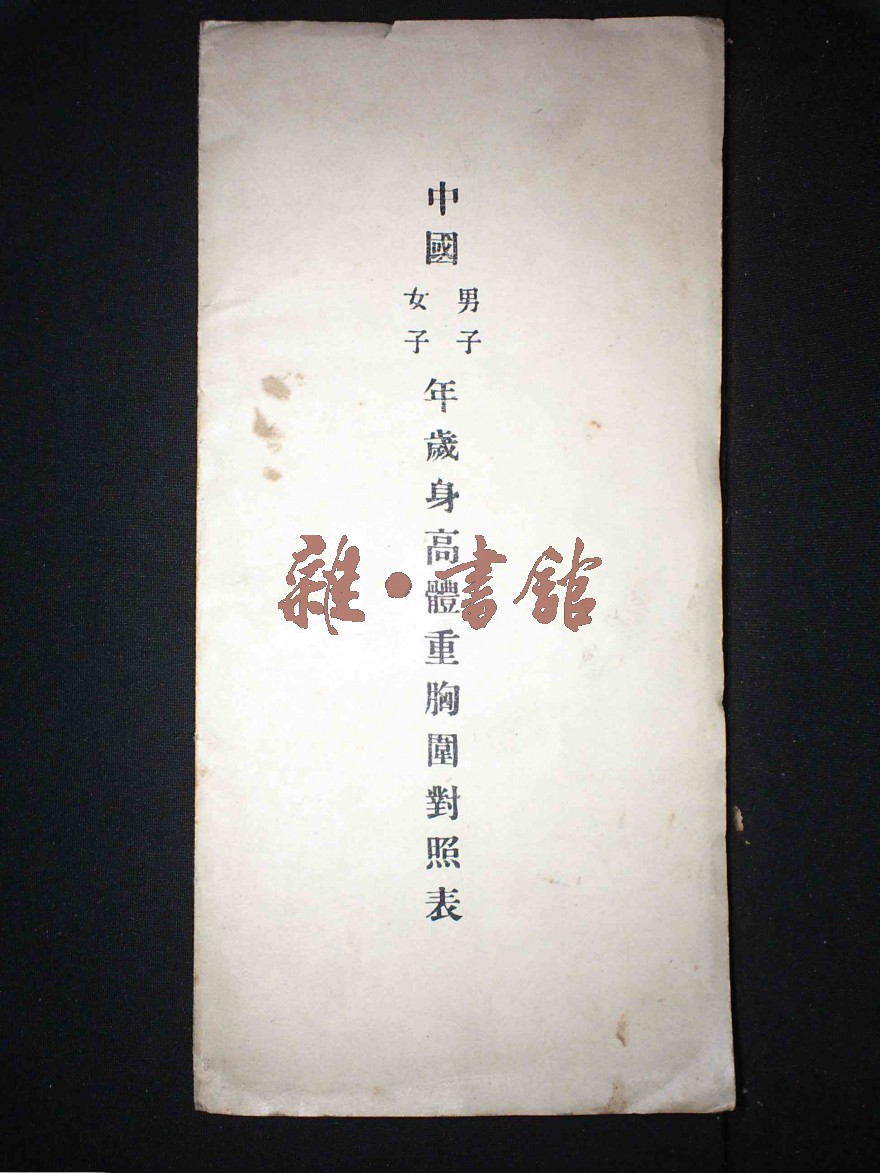 中國
男子
女子
年歲身高體重胸圍對照表
雜·書館